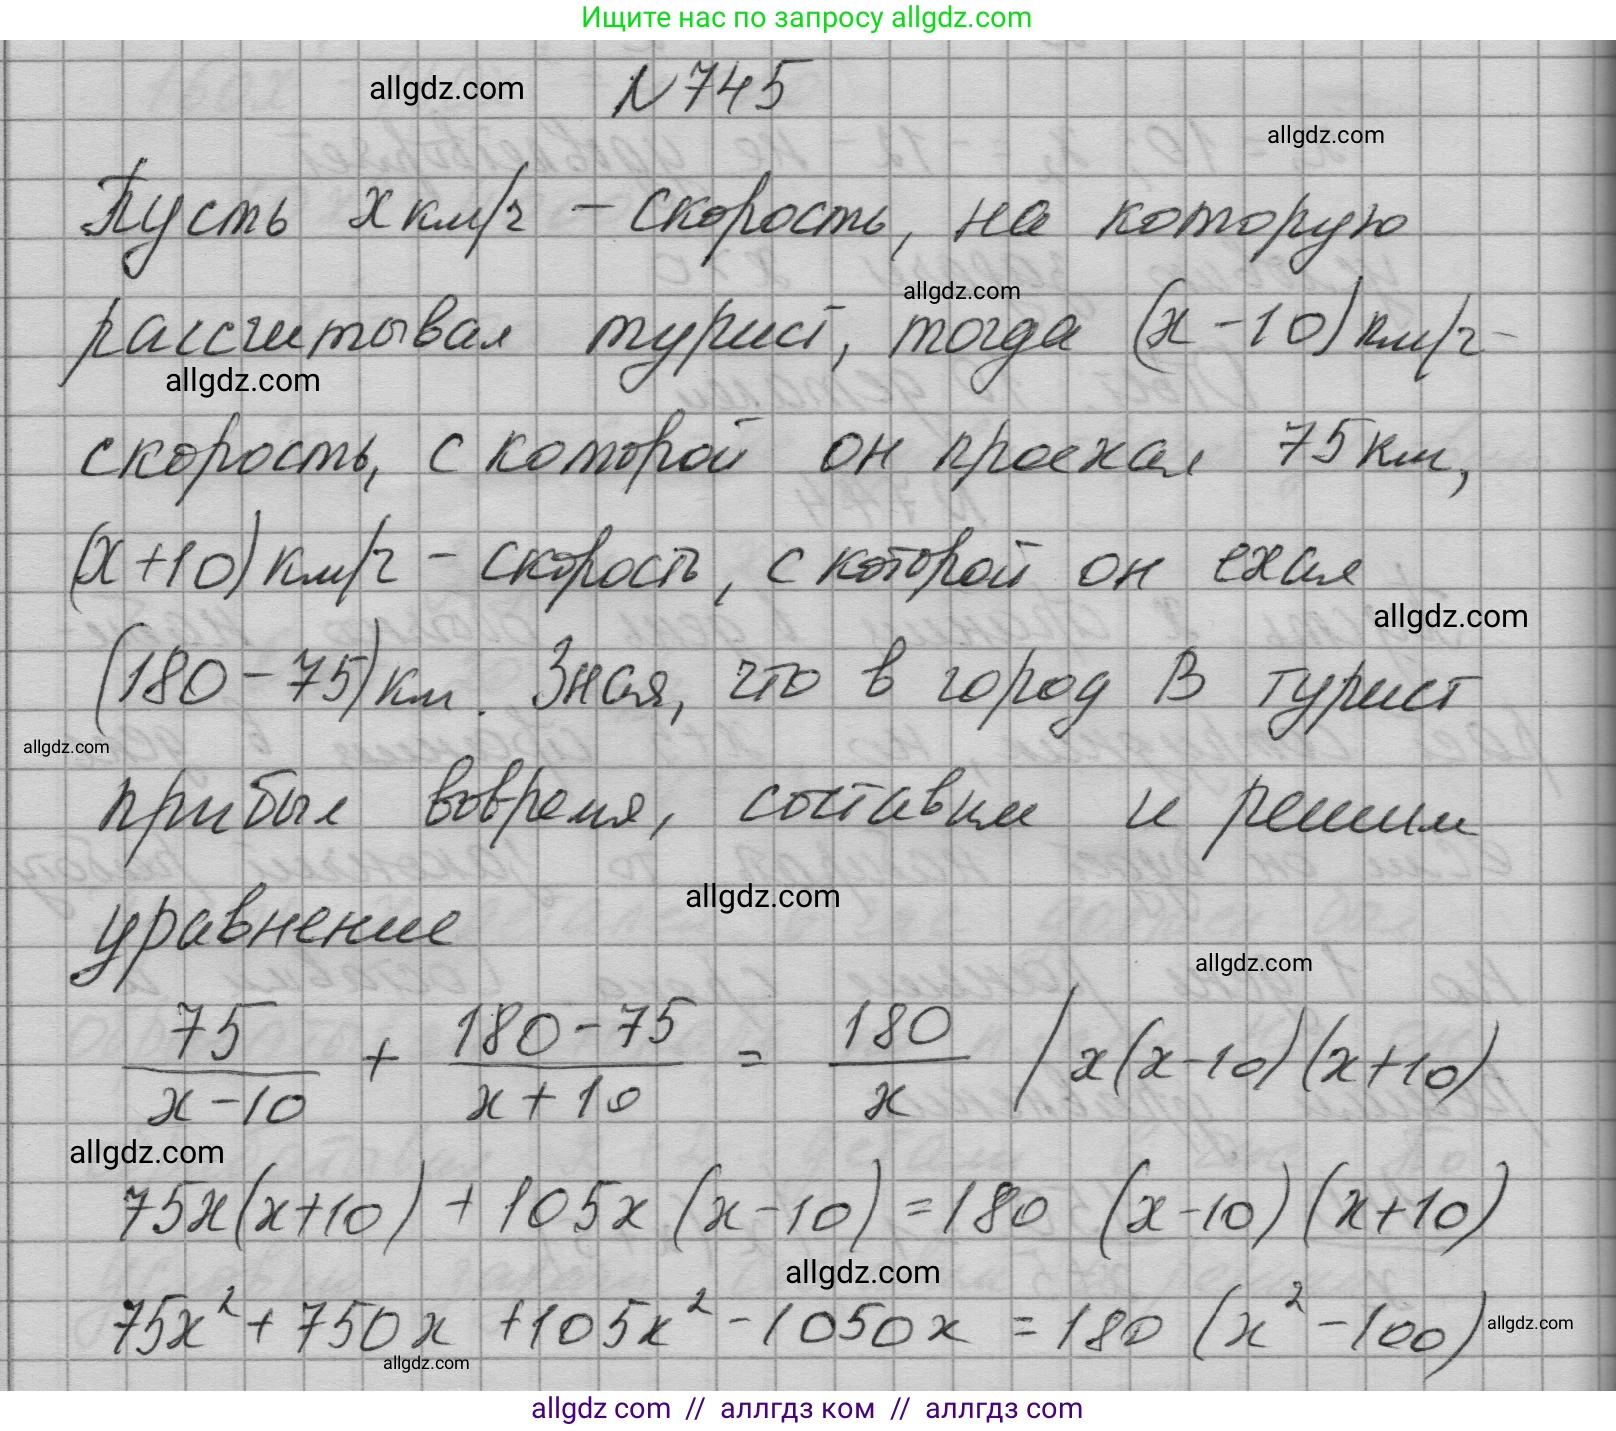 Ищите нас по запросу allgdz.com
allgdz.com
N 745
allgdz.com
Пусть x км/ч - скорость, на которую
allgdz.com
рассчитывал турист, тогда (x - 10) км/ч -
allgdz.com
скорость, с которой он проехал 75 км,
(x + 10) км/ч - скорость, с которой он ехал
allgdz.com
(180 - 75) км. Зная, что в город В турист
allgdz.com
прибыл вовремя, составим и решим
allgdz.com
уравнение
allgdz.com
75/(x - 10) + (180 - 75)/(x + 10) = 180/x | x(x - 10)(x + 10)
allgdz.com
75x(x + 10) + 105x(x - 10) = 180 (x - 10)(x + 10)
allgdz.com
75x² + 750x + 105x² - 1050x = 180 (x² - 100)
allgdz.com
allgdz.com
allgdz com // аллгдз ком // аллгдз com